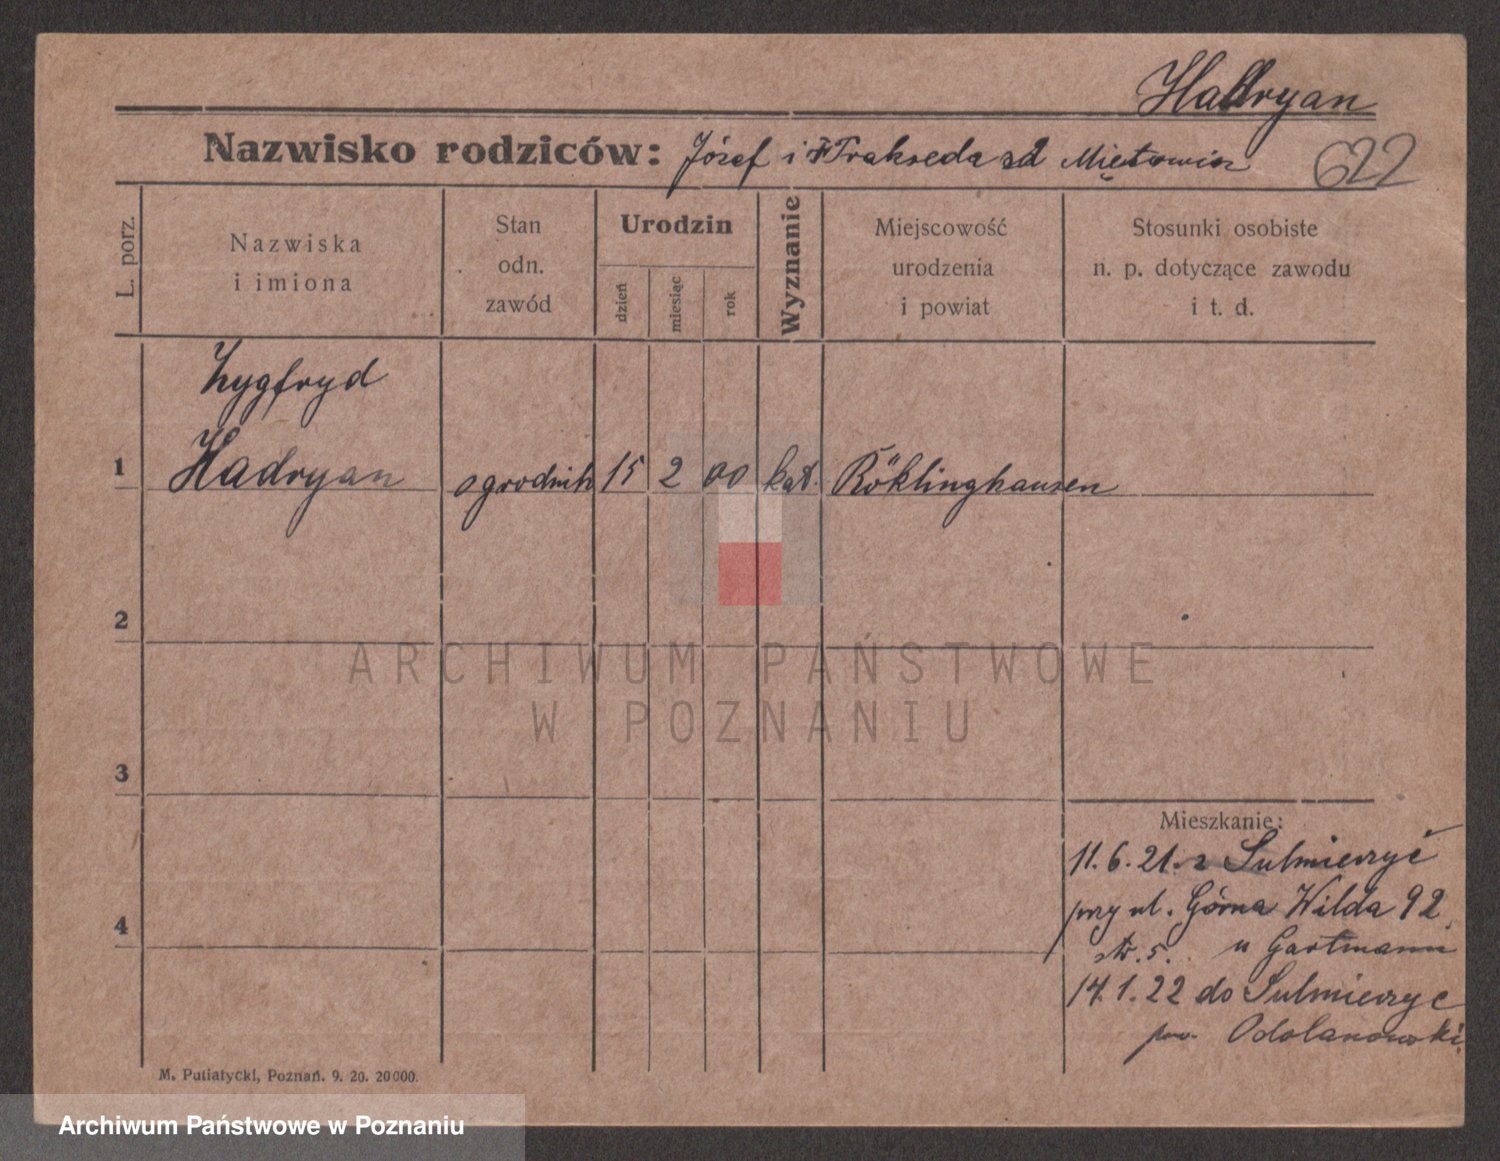 Hadryan
Nazwisko rodziców: Józef i Prakseda zd Miętowicz
622
L. porz.
Nazwiska
i imiona
Stan
odn.
zawód
Urodzin
dzień
miesiąc
rok
Wyznanie
Miejscowość
urodzenia
i powiat
Stosunki osobiste
n. p. dotyczące zawodu
i t. d.
Zygfryd
1 Hadryan ogrodnik 15 2 00 kat. Röklinghausen
2
ARCHIWUM PAŃSTWOWE
W POZNANIU
3
Mieszkanie:
11.6.21. z Sulmierzyć
przy ul. Górna Wilda 92
4
str. 5. u Gartmann
14.1.22 do Sulmierzyc
pow. Odolanowski.
M. Putiatycki, Poznań. 9. 20. 20000.
Archiwum Państwowe w Poznaniu